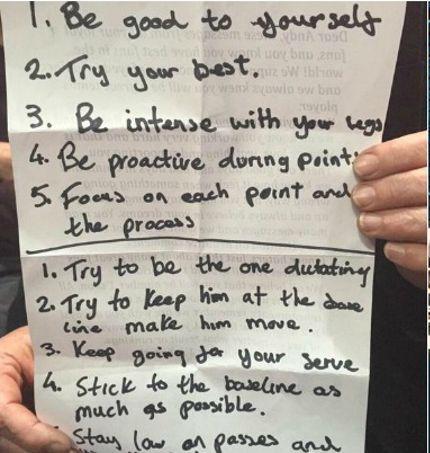 1. Be good to yourself
2. Try your best.
3. Be intense with your legs
4. Be proactive during point
5. Focus on each point and
the process
1. Try to be the one dictating
2. Try to keep him at the base
line make him move.
3. Keep going for your serve
4. Stick to the baseline as
much as possible.
Stay low on passes and